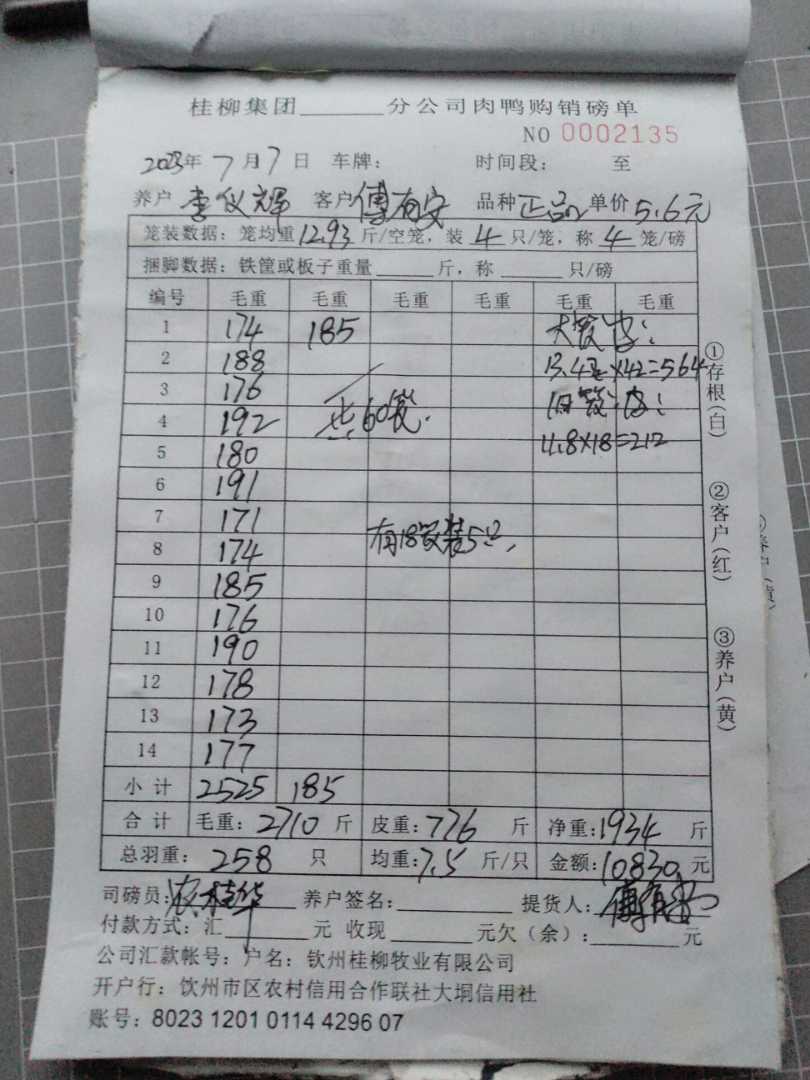 桂柳集团______分公司肉鸭购销磅单
NO 0002135
2023年7月7日 车牌： 时间段： 至
养户 李仪辉 客户 傅有安 品种 正品 单价 5.6元
笼装数据：笼均重12.93斤/空笼，装4只/笼，称4笼/磅
捆脚数据：铁筐或板子重量______斤，称______只/磅
编号 毛重 毛重 毛重 毛重 毛重 毛重
1 174 185
2 188
3 176
4 192 共60笼.
5 180
6 191
7 171
8 174 有18笼装5只,
9 185
10 176
11 190
12 178
13 173
14 177
×42=564
×18=212
小计 2525 185
合计 毛重：2710斤 皮重：776斤 净重：1934斤
总羽重：258只 均重：7.5斤/只 金额：10830元
司磅员： 养户签名：______ 提货人：傅有安
付款方式：汇______元 收现______元欠（余）：______元
公司汇款帐号：户名：钦州桂柳牧业有限公司
开户行：钦州市区农村信用合作联社大垌信用社
账号：8023 1201 0114 4296 07
①存根（白）
②客户（红）
③养户（黄）